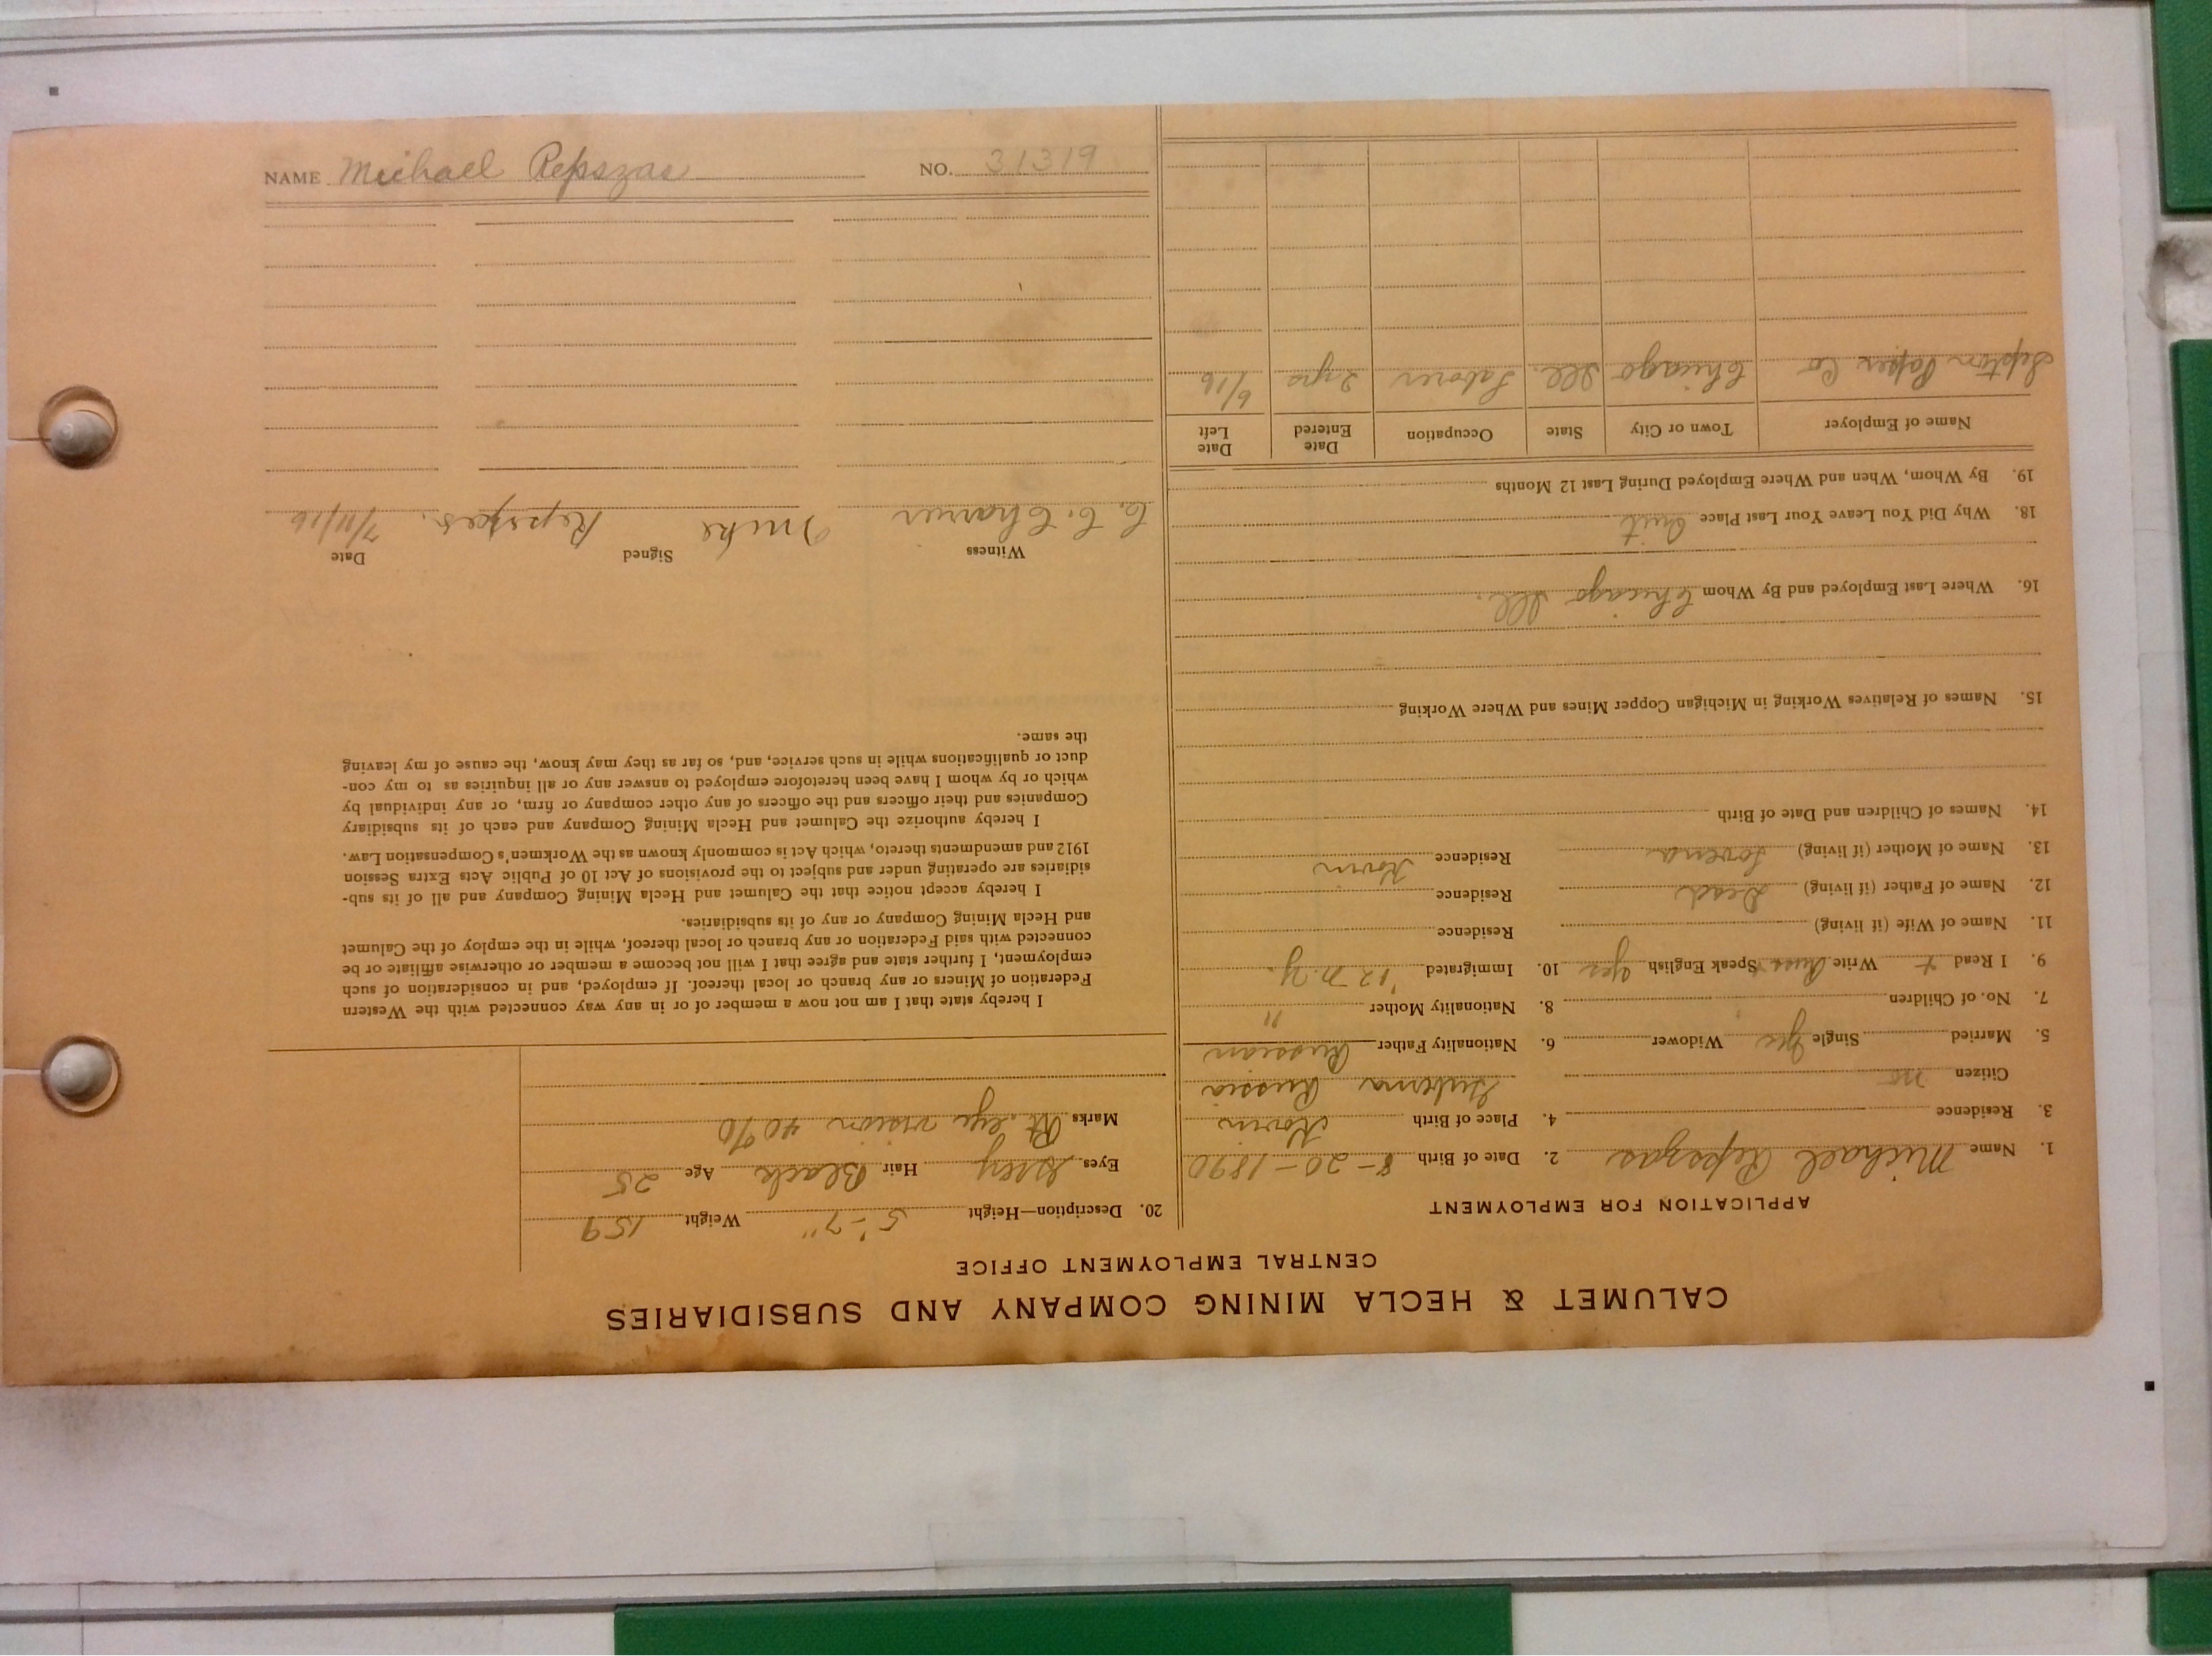 NAME Michael Repszas NO. 31319
CALUMET & HECLA MINING COMPANY AND SUBSIDIARIES
CENTRAL EMPLOYMENT OFFICE
APPLICATION FOR EMPLOYMENT
1. Name Michael Repszas 2. Date of Birth 8-20-1890
3. Residence 4. Place of Birth Kovin
Citizen no Guberna Russia
5. Married Single Yes Widower 6. Nationality Father Russian
7. No. of Children 8. Nationality Mother "
9. I Read + Write Russ Speak English yes 10. Immigrated '12 N.Y.
11. Name of Wife (if living) Residence
12. Name of Father (if living) Dead Residence
13. Name of Mother (if living) Residence Kovin
14. Names of Children and Date of Birth
15. Names of Relatives Working in Michigan Copper Mines and Where Working
16. Where Last Employed and By Whom Chicago Ill.
18. Why Did You Leave Your Last Place Quit
19. By Whom, When and Where Employed During Last 12 Months
Name of Employer Town or City State Occupation Date Entered Date Left
Paper Co Chicago Ill. Laborer 2 yrs 6/16
20. Description—Height 5'-7" Weight 159
Eyes Grey Hair Black Age 25
Marks Rt. eye vision 40%
I hereby state that I am not now a member of or in any way connected with the Western
Federation of Miners or any branch or local thereof. If employed, and in consideration of such
employment, I further state and agree that I will not become a member or otherwise affiliate or be
connected with said Federation or any branch or local thereof, while in the employ of the Calumet
and Hecla Mining Company or any of its subsidiaries.
I hereby accept notice that the Calumet and Hecla Mining Company and all of its sub-
sidiaries are operating under and subject to the provisions of Act 10 of Public Acts Extra Session
1912 and amendments thereto, which Act is commonly known as the Workmen's Compensation Law.
I hereby authorize the Calumet and Hecla Mining Company and each of its subsidiary
Companies and their officers and the officers of any other company or firm, or any individual by
which or by whom I have been heretofore employed to answer any or all inquiries as to my con-
duct or qualifications while in such service, and, so far as they may know, the cause of my leaving
the same.
Witness Signed Date
C. C. Mike Repszes. 7/11/16